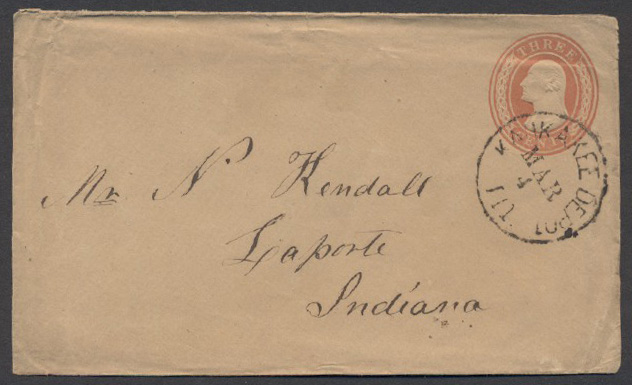 THREE
CENTS
KANKAKEE DEPOT
MAR
4
ILL
Mr N Kendall
Laporte
Indiana